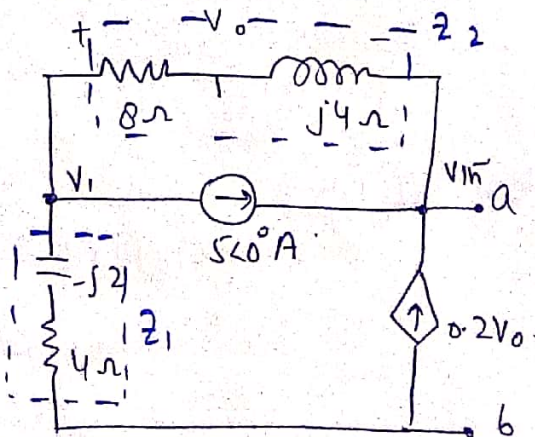 + - V₀ - - Z₂
8Ω
j4Ω
V₁
Vin
a
5∠0° A
-j2
Z₁
4Ω
0.2V₀
b